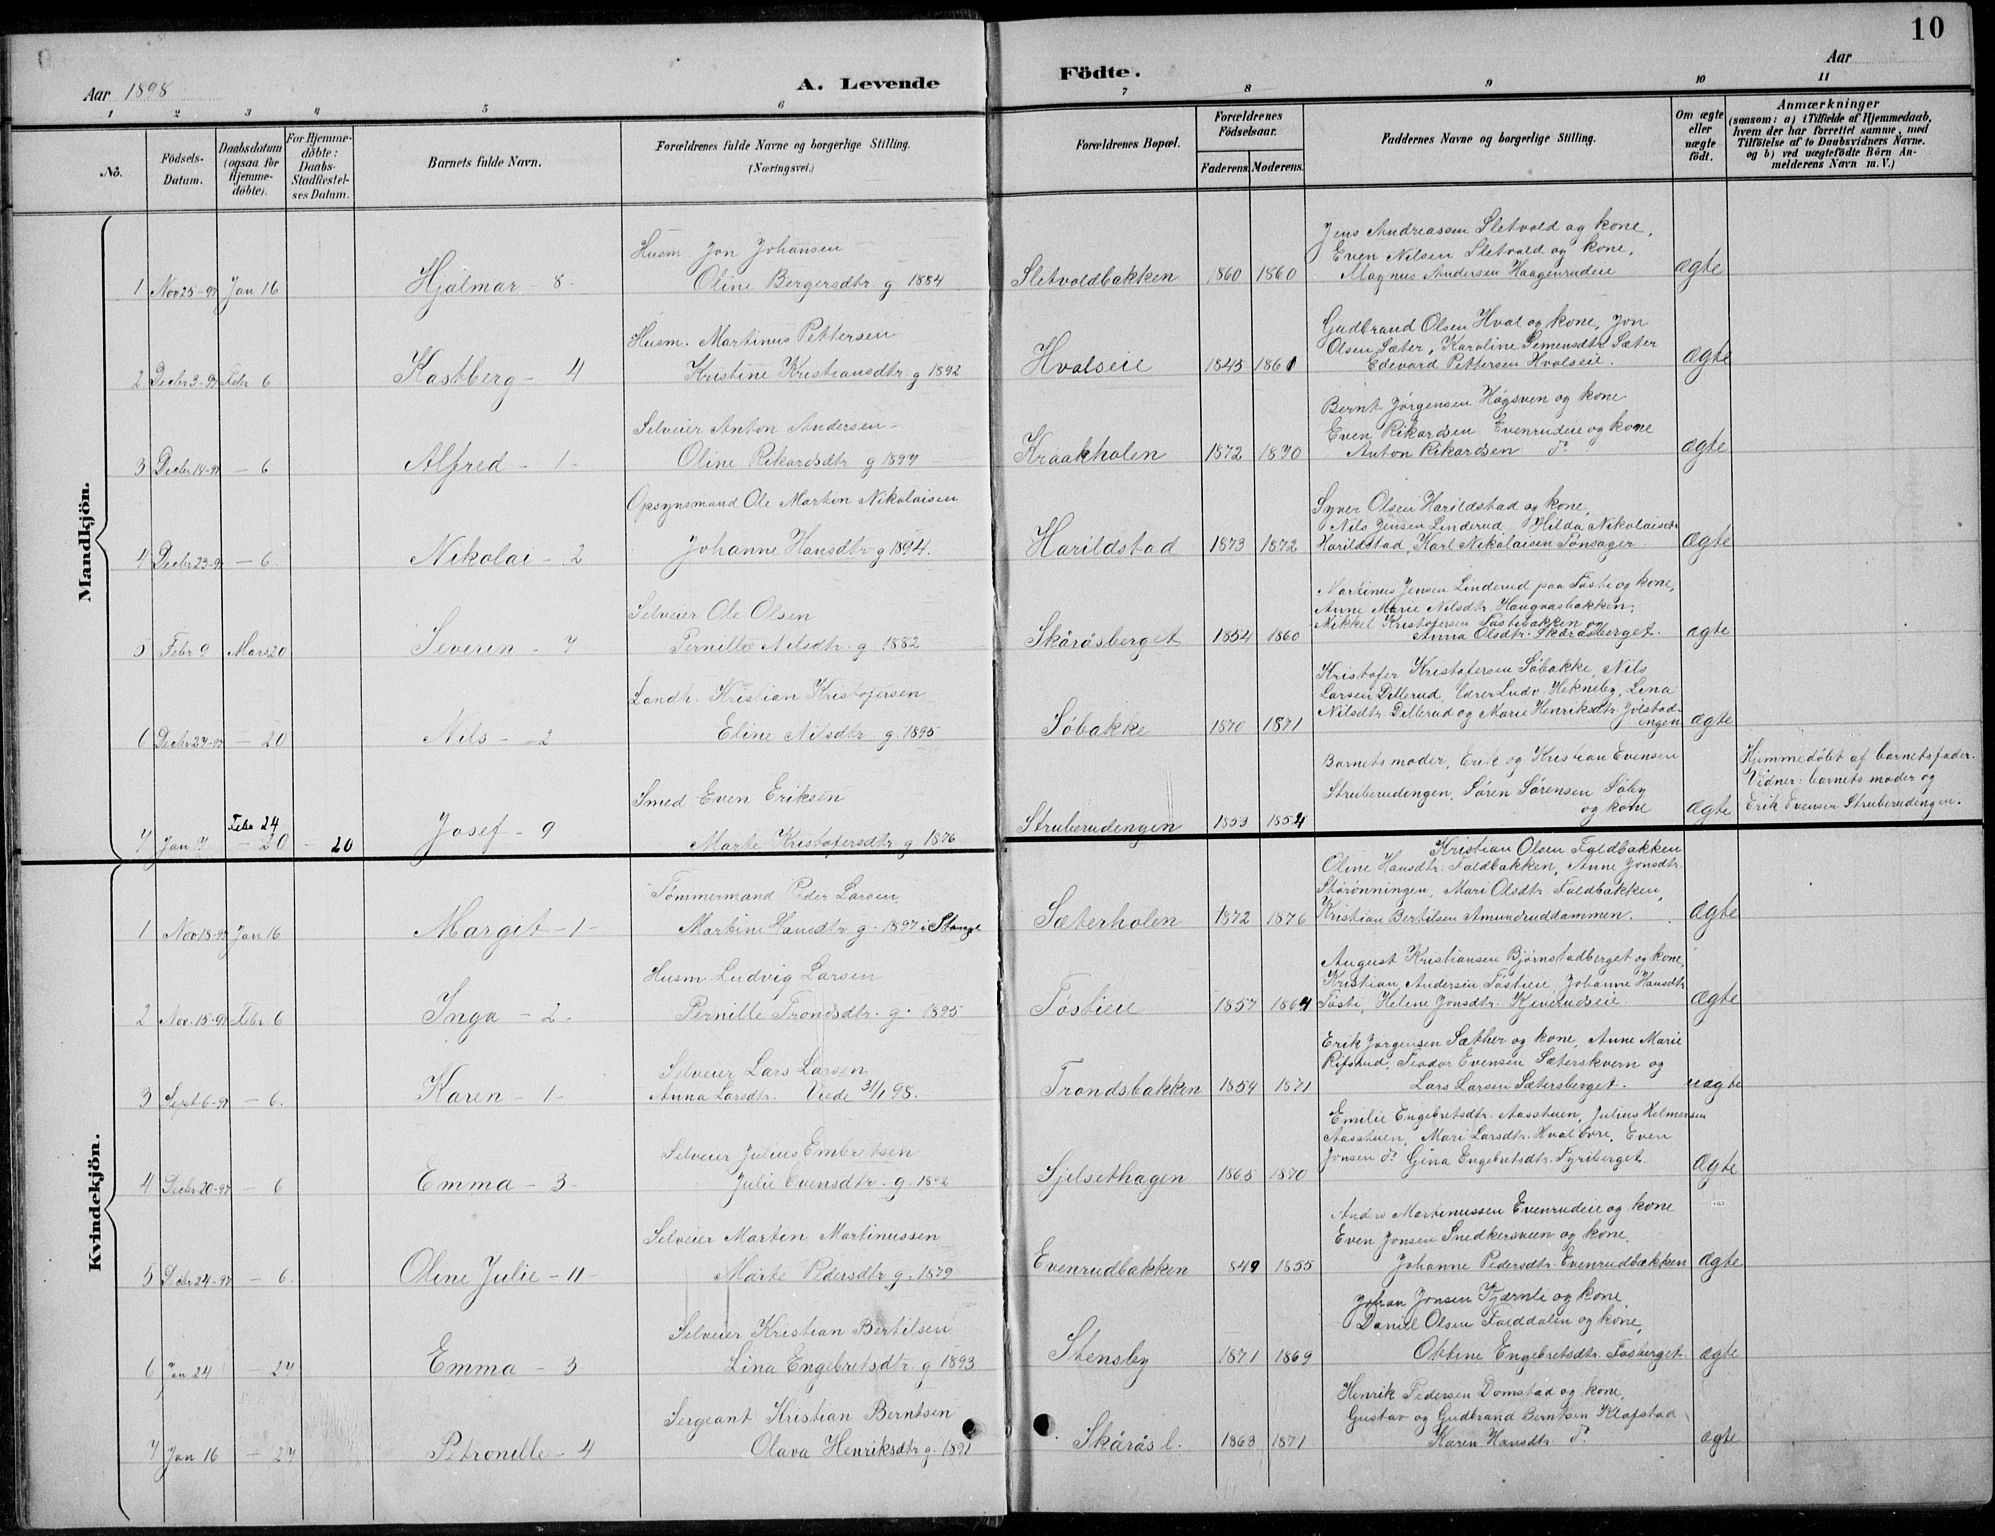 10
Aar 1898
A. Levende Födte.
Aar
1 2 3 4 5 6 7 8 9 10 11
Nô.
Födsels-Datum.
Daabsdatum (ogsaa for Hjemmedöbte).
For Hjemmedöbte: Daabs-Stadfæstelses Datum.
Barnets fulde Navn.
Forældrenes fulde Navne og borgerlige Stilling. (Næringsvei.)
Forældrenes Bopæl.
Forældrenes Födselsaar.
Faderens. Moderens.
Faddernes Navne og borgerlige Stilling.
Om ægte eller uægte födt.
Anmærkninger (saasom: a) i Tilfælde af Hjemmedaab, hvem der har forrettet samme, med Tilföielse af to Daabsvidners Navne. og b) ved uægtefödte Börn Anmelderens Navn m. V.)
Mandkjön.
Husm. Jon Johansen
Jens Andreassen Sletvold og kone,
Even Nilsen Sletvold og kone,
1 Nov 25-97 Jan 16 Hjalmar - 8 - Oline Bergersdtr g 1884 Sletvoldbakken 1860 1860 Magnus Andersen Haagenrudeie ægte
Husm. Martinus Pettersen
Gudbrand Olsen Hval og kone, Jon
Olsen Sæter, Karoline Simensdtr. Sæter
2 Decbr 3-97 Febr 6 Kastberg - 4 Kristine Kristiansdtr g 1892 Hvalseie 1845 1861 Edevard Pettersen Hvalseie. ægte
Selveier Anton Andersen -
Bernt Jørgensen Høgsven og kone
Even Rikardsen Evenrudeie og kone
3 Decbr 14-97 - 6 Alfred - 1 - Oline Rikardsdtr g 1897 Kraakholen 1872 1870 Anton Rikardsen do ægte
Opsynsmand Ole Martin Nikolaisen
Syver Olsen Harildstad og kone,
Nils Jensen Linderud, Hilda Nikolaisdtr
4 Decbr 23-97 - 6 Nikolai - 2 Johanne Hansdtr g 1894. Harildstad 1873 1872 Harildstad, Karl Nikolaisen Tønsager. ægte
Selveier Ole Olsen
Martinus Jensen Linderud paa Tøste og kone,
Anne Marie Nilsdtr. Haugvasbakken,
Nikkel Kristofersen Tøstebakken og
5 Febr 9 Mars 20 Severin - 7 Pernille Nilsdtr. g. 1882 Skåråsberget 1854 1860 Anna Olsdtr. Skåråsberget. ægte
Landh. Kristian Kristofersen
Kristofer Kristofersen Søbakke, Nils
Larsen Dillerud, Ludv. Hekneby, Lena
Nilsdtr. Dillerud og Marie Henriksdtr. Jolstad-
6 Decbr 27-97 - 20 Nils - 2 Eline Nilsdtr. g. 1895 Søbakke 1870 1871 engen ægte
Smed Even Eriksen
Barnets moder, Erik og Kristian Evensen
Struberudengen, Søren Sørensen Søby
Hjemmedøbt af barnets fader.
Vidner: barnets moder og
Erik Evensen Struberudengen.
Febr 24
7 Jan 7 - 20 - 20 Josef - 9 Marte Kristofersdtr g 1876 Struberudengen 1853 1854 og kone ægte
Kvindekjön.
Tømmermand Peder Larsen
Kristian Olsen Faldbakken
Oline Hansdtr. Faldbakken, Anne Jonsdtr.
Størønningen, Mari Olsdtr. Faldbakken,
1 Nov 18-97 Jan 16 Margit - 1 - Martine Hansdtr g. 1897 i Stange Sæterholen 1872 1876 Kristian Bertilsen Amundruddammen. ægte
Husm. Ludvig Larsen
August Kristiansen Bjørnstadberget og kone,
Kristian Andersen Tøstieie, Johanne Hansdtr
2 Nov. 15-97 Febr 6 Inga - 2 - Pernille Trondsdtr. g. 1895 Tøstieie 1857 1864 Tøste, Helene Jonsdtr. Kjverudseie. ægte
Selveier Lars Larsen
Erik Jørgensen Sæther og kone, Anne Marie
Rifstad, Teodor Evensen Sæterskvern og
3 Sept 6-97 - 6. Karen - 1 - Anna Larsdtr. Viede 3/1 98. Trondsbakken 1854 1871 Lars Larsen Sætersberget. uægte
Selveier Julius Embretsen
Emilie Engebretsdtr. Aasstuen, Julius Helmersen
Aasstuen, Mari Larsdtr. Hval Øvre, Even
4 Decbr 20-97 - 6 Emma - 3 - Julie Evensdtr. g. Sjelsethagen 1865 1870 Jonsen do Gina Engebretsdtr. Fyriberget. ægte
Selveier Martin Martinussen
Anders Martinussen Evenrudeie og kone
Even Jonsen Snedkersveen og kone,
5 Decbr 24-97 - 6. Oline Julie - 11 - Marte Pedersdtr g. 1879 Evenrudbakken 1849 1855 Johanne Pedersdtr. Evenrudbakken ægte
Selveier Kristian Bertilsen
Johan Jonsen Kjærnli og kone
Daniel Olsen Falddalen og kone,
6 Jan 24 - 27 Emma - 3 Lina Engebretsdtr. g 1893 Stensby 1871 1869 Oktine Engebretsdtr. Fosberget. ægte
Sergeant Kristian Berntsen
Henrik Pedersen Domstad og kone,
Gustav og Gudbrand Berntsen Klafstad
7 Jan 16 - 27 Petronille - 4 Olava Henriksdtr g. 1891 Skårås l. 1863 1871 Karen Hansdtr do ægte